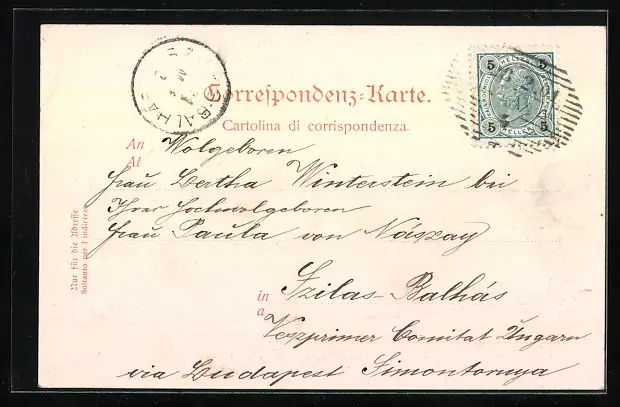 Correspondenz-Karte.
Cartolina di corrispondenza.
An Wolgeboren
Al
Frau Bertha Winterstein bei
Ihrer Hochwolgeboren
Frau Paula von Nászay
in Szilas-Balhás
a
Veszprimer Comitat Ungarn
via Budapest Simontornya
Nur für die Adresse
Soltanto per l'indirizzo
5 5
5 5
HELLER
BALHÁS